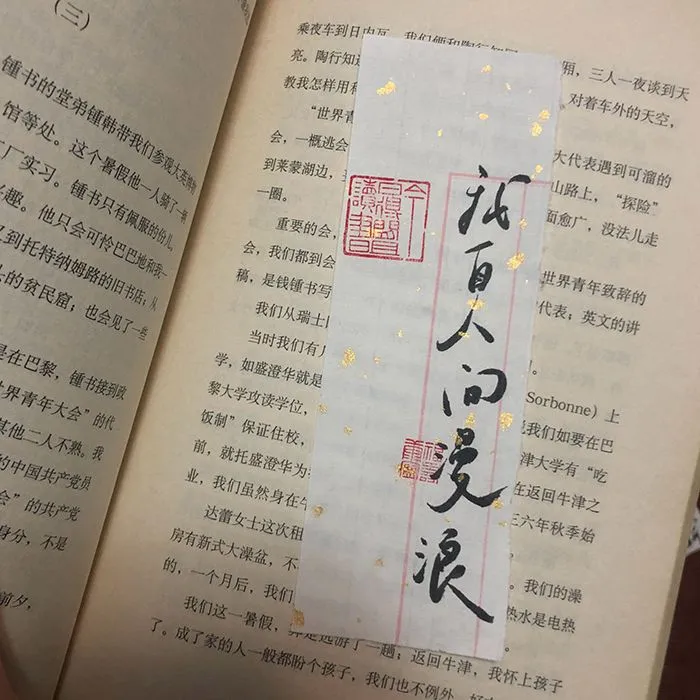 （三）
锺书的堂弟锺韩带我们参观大英博物
馆等处。这个暑假他一人骑了一辆
厂实习。锺书只有佩服的份儿，
兴趣。他只会可怜巴巴地和我一
又到托特纳姆路的旧书店，从
的贫民窟；也会见了一些
是在巴黎，锺书接到政
世界青年大会”的代
其他二人不熟。我
的中国共产党员
会”的共产党
身分，不是
前夕，
乘夜车到日内瓦，我们便和陶行知同 厢，三人一夜谈到天
亮。陶行知 对着车外的天空，
教我怎样用
“世界青 大代表遇到可溜的
会，一概逃会 山路上，“探险”
到莱蒙湖边， 面愈广，没法儿走
一圈。
重要的会，
会，我们都到会 世界青年致辞的
稿，是钱锺书写 代表；英文的讲
我们从瑞士
当时我们有
学，如盛澄华就是 Sorbonne）上
黎大学攻读学位， 说我们如要在巴
饭制”保证住校， 津大学有“吃
前，就托盛澄华为 在返回牛津之
业，我们虽然身在牛 三六年秋季始
达蕾女士这次租
房有新式大澡盆，不 。我们的澡
的，一个月后，我们 热水是电热
我们这一暑假，算是远游了一趟；返回牛津，我怀上孩子
了。成了家的人一般都盼个孩子，我们也不例外。
我自人间漫浪